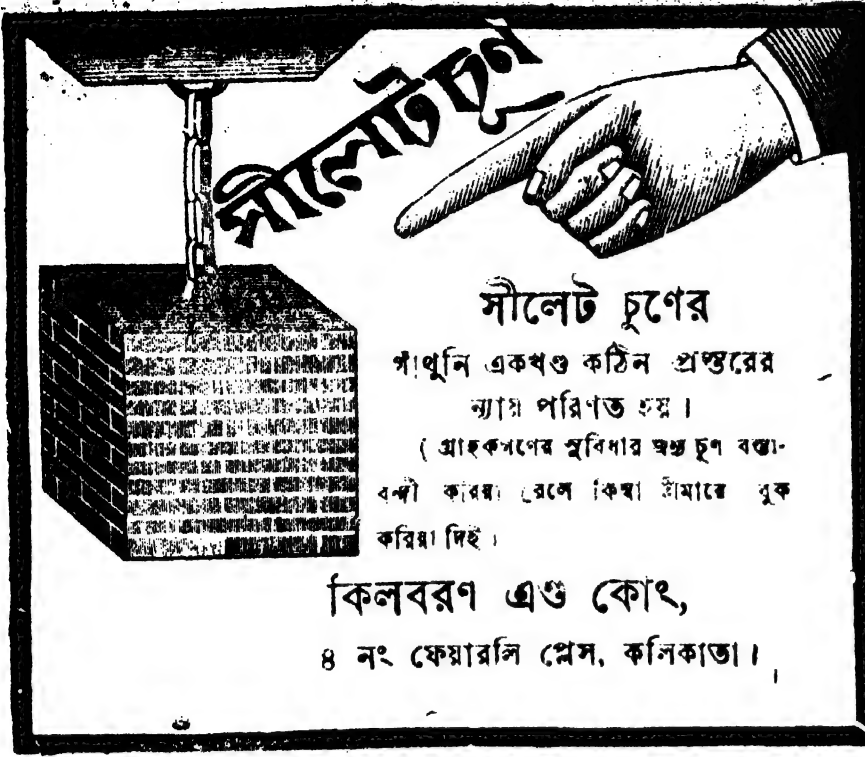 সীলেটচূণ
সীলেট চূণের
গাঁথুনি একখণ্ড কঠিন প্রস্তরের
ন্যায় পরিণত হয় ।
( গ্রাহকগণের সুবিধার জন্য চূণ বস্তা-
বন্দী করিয়া রেলে কিম্বা ষ্টীমারে বুক
করিয়া দিই ।
কিলবরণ এণ্ড কোং,
৪ নং ফেয়ারলি প্লেস, কলিকাতা ।